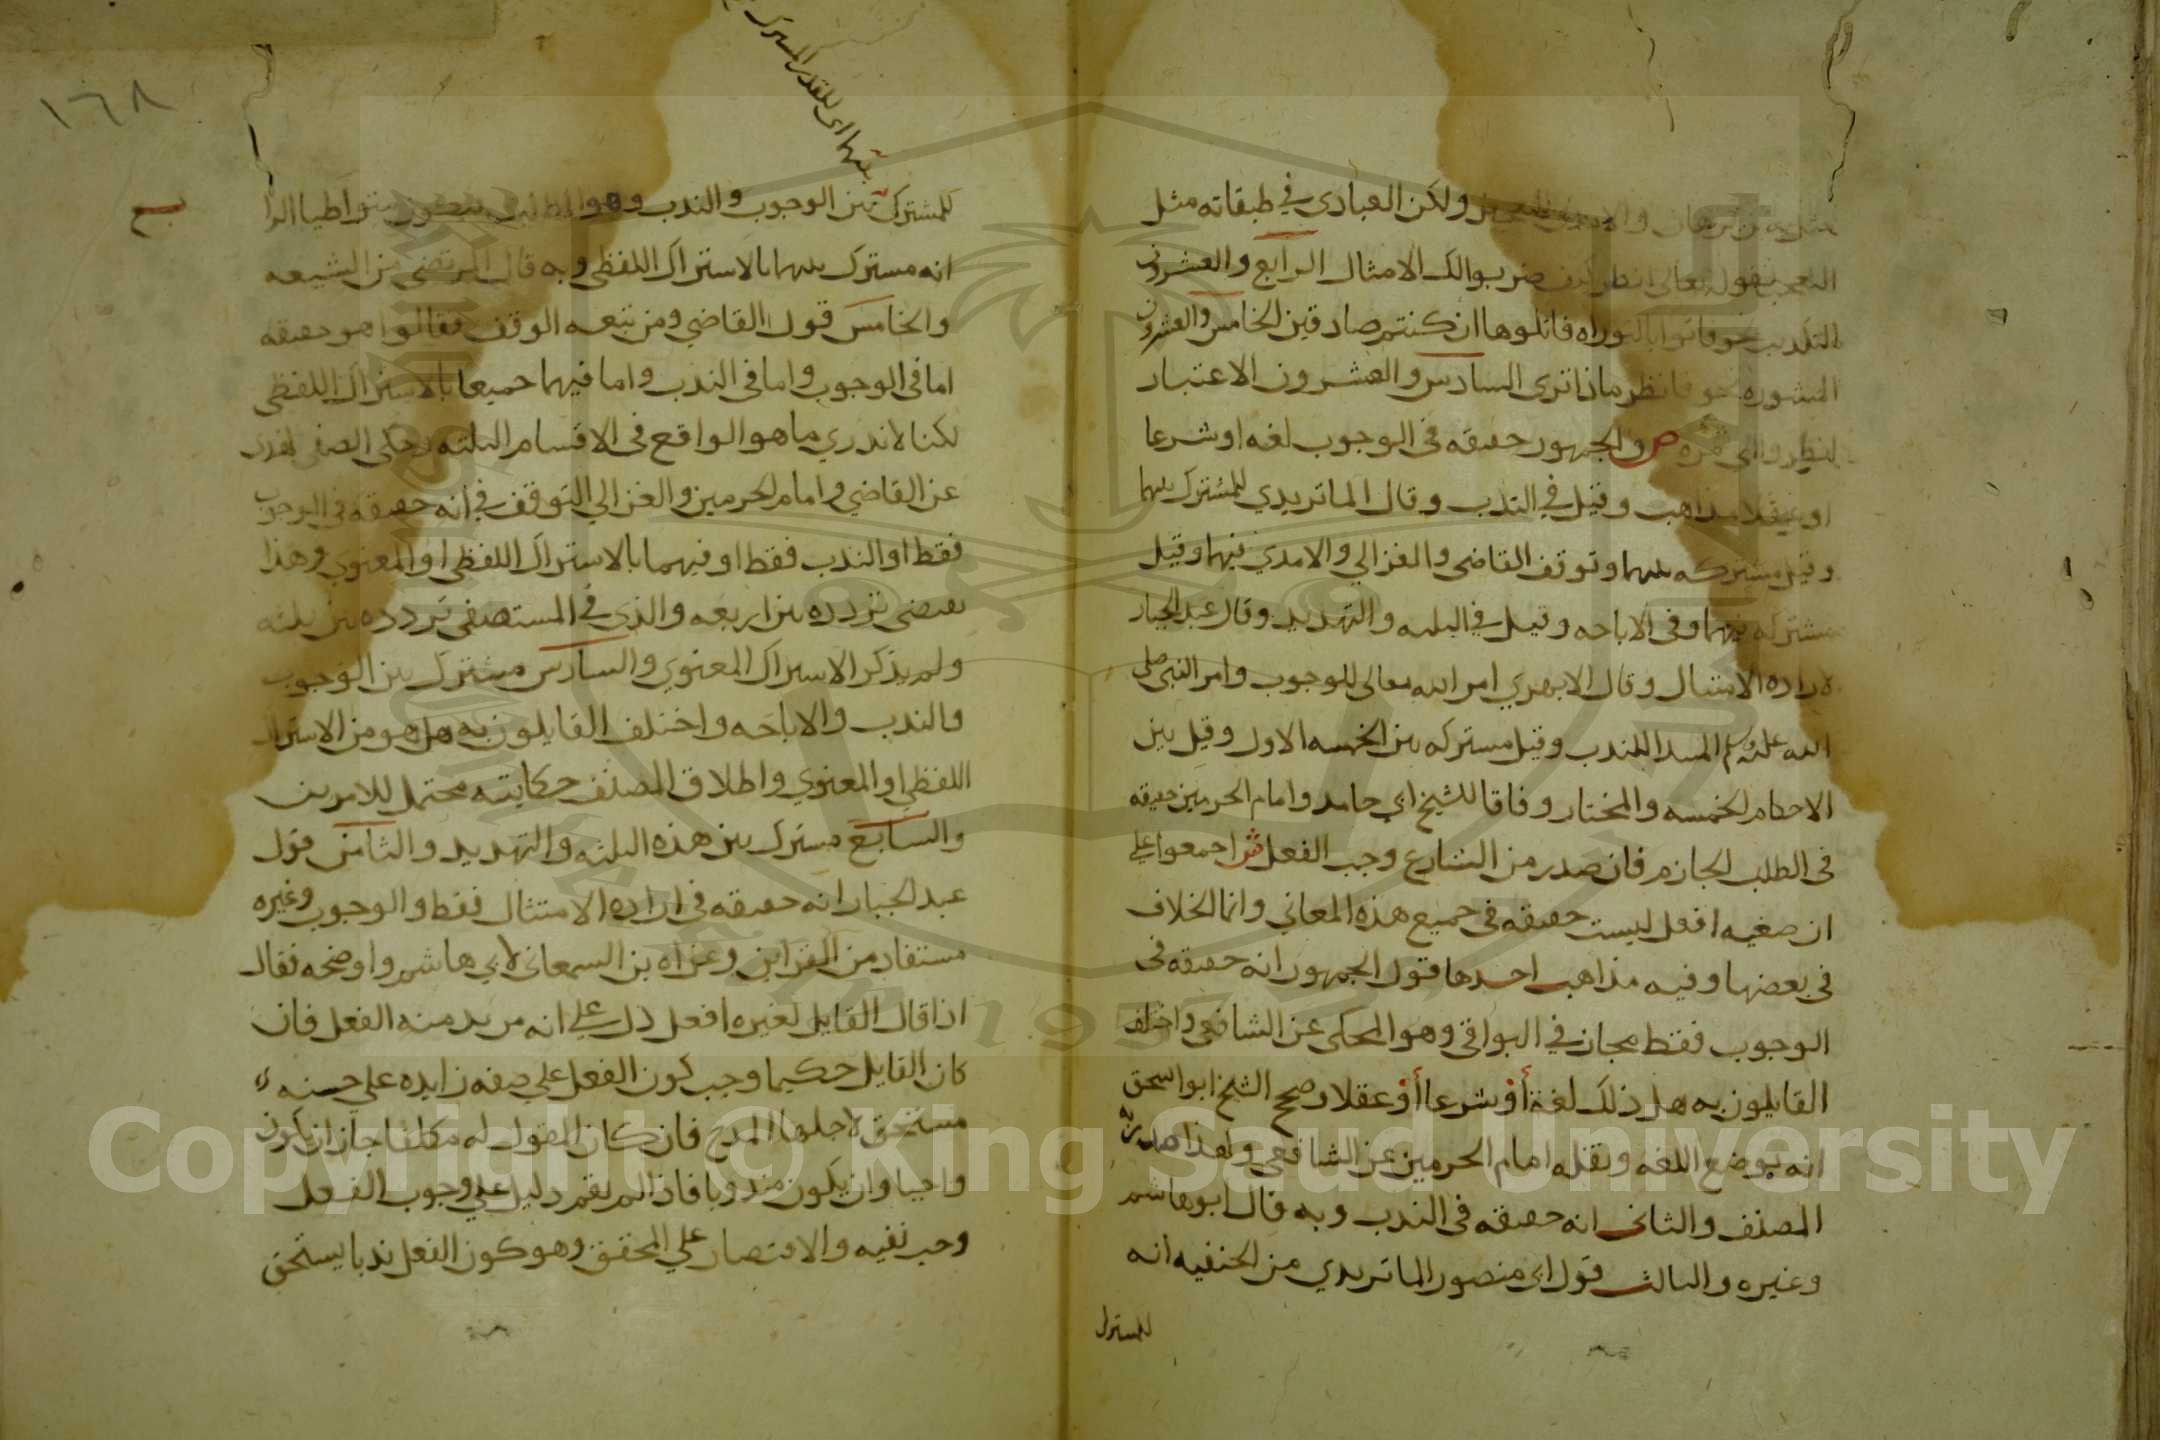 ولكن العبادي في طبقاته مثل
التعجب بقوله تعالى انظر كيف ضربوا لك الامثال الرابع والعشرون
التكذيب نحو فاتوا بالتوراه فاتلوها ان كنتم صادقين الخامس والعشرون
المشوره نحو فانظر ماذا ترى السادس والعشرون الاعتبار
انظروا الى ثمره ص والجمهور حقيقه في الوجوب لغه او شرعا
او عقلا مذاهب وقيل في الندب وقال الماتريدي للمشترك بينهما
وقيل مشتركه بينهما وتوقف القاضي والغزالي والامدي فيها وقيل
مشتركه فيهما وفي الاباحه وقيل في الثلثه والتهديد وقال عبد الجبار
لاراده الامتثال وقال الابهري امر الله تعالى للوجوب وامر النبي صلى
الله عليه وسلم المبتدا للندب وقيل مشتركه بين الخمسه الاول وقيل بين
الاحكام الخمسه والمختار وفاقا للشيخ ابي حامد وامام الحرمين حقيقه
في الطلب الجازم فان صدر من الشارع وجب الفعل ش اجمعوا على
ان صغيه افعل ليست حقيقه في جميع هذه المعاني وانما الخلاف
في بعضها وفيه مذاهب احدها قول الجمهور انه حقيقه في
الوجوب فقط مجاز في البواقي وهو المحكى عن الشافعي واختلف
القايلون به هل ذلك لغة أو شرعا أو عقلا وصحح الشيخ ابو اسحق
انه بوضع اللغه ونقله امام الحرمين عن الشافعي ولهذا
المصنف والثاني انه حقيقه في الندب وبه قال ابو هاشم
وغيره والثالث قول ابي منصور الماتريدي من الحنفيه انه
للمشترك
١٦٨
بينهما اي للقدر المشترك
للمشترك بين الوجوب والندب وهو الطلب
انه مشترك بينهما بالاشتراك اللفظي وبه قال المرتضى من الشيعه
والخامس قول القاضي ومن تبعه الوقف فقالوا هو حقيقه
اما في الوجوب واما في الندب واما فيهما جميعا بالاشتراك اللفظي
لكنا لا ندري ما هو الواقع في الاقسام الثلثه وحكى الصفي الهندي
عن القاضي وامام الحرمين والغزالي التوقف في انه حقيقه في الوجوب
فقط او الندب فقط او فيهما بالاشتراك اللفظي او المعنوي وهذا
يقتضي تردده بين اربعه والذي في المستصفى تردده بين ثلثه
ولم يذكر الاشتراك المعنوي والسادس مشترك بين الوجوب
والندب والاباحه واختلف القايلون به هل هو من الاشتراك
اللفظي او المعنوي واطلاق المصنف حكايته محتمل للامرين
والسابع مشترك بين هذه الثلثه والتهديد والثامن قول
عبد الجبار انه حقيقه في اراده الامتثال فقط والوجوب وغيره
مستفاد من القراين وعزاه بن السمعاني لابي هاشم واوضحه فقال
اذا قال القايل لغيره افعل دل على انه مريد منه الفعل فان
كان القايل حكيما وجب كون الفعل على صفه زايده على حسنه
مستحق لاجلها المدح فان كان المقول له مكلفا جاز ان يكون
واجبا وان يكون مندوبا فاذا لم يقم دليل على وجوب الفعل
وجب نفيه والاقتصار على المحقق وهو كون الفعل ندبا يستحق
Copyright © King Saud University